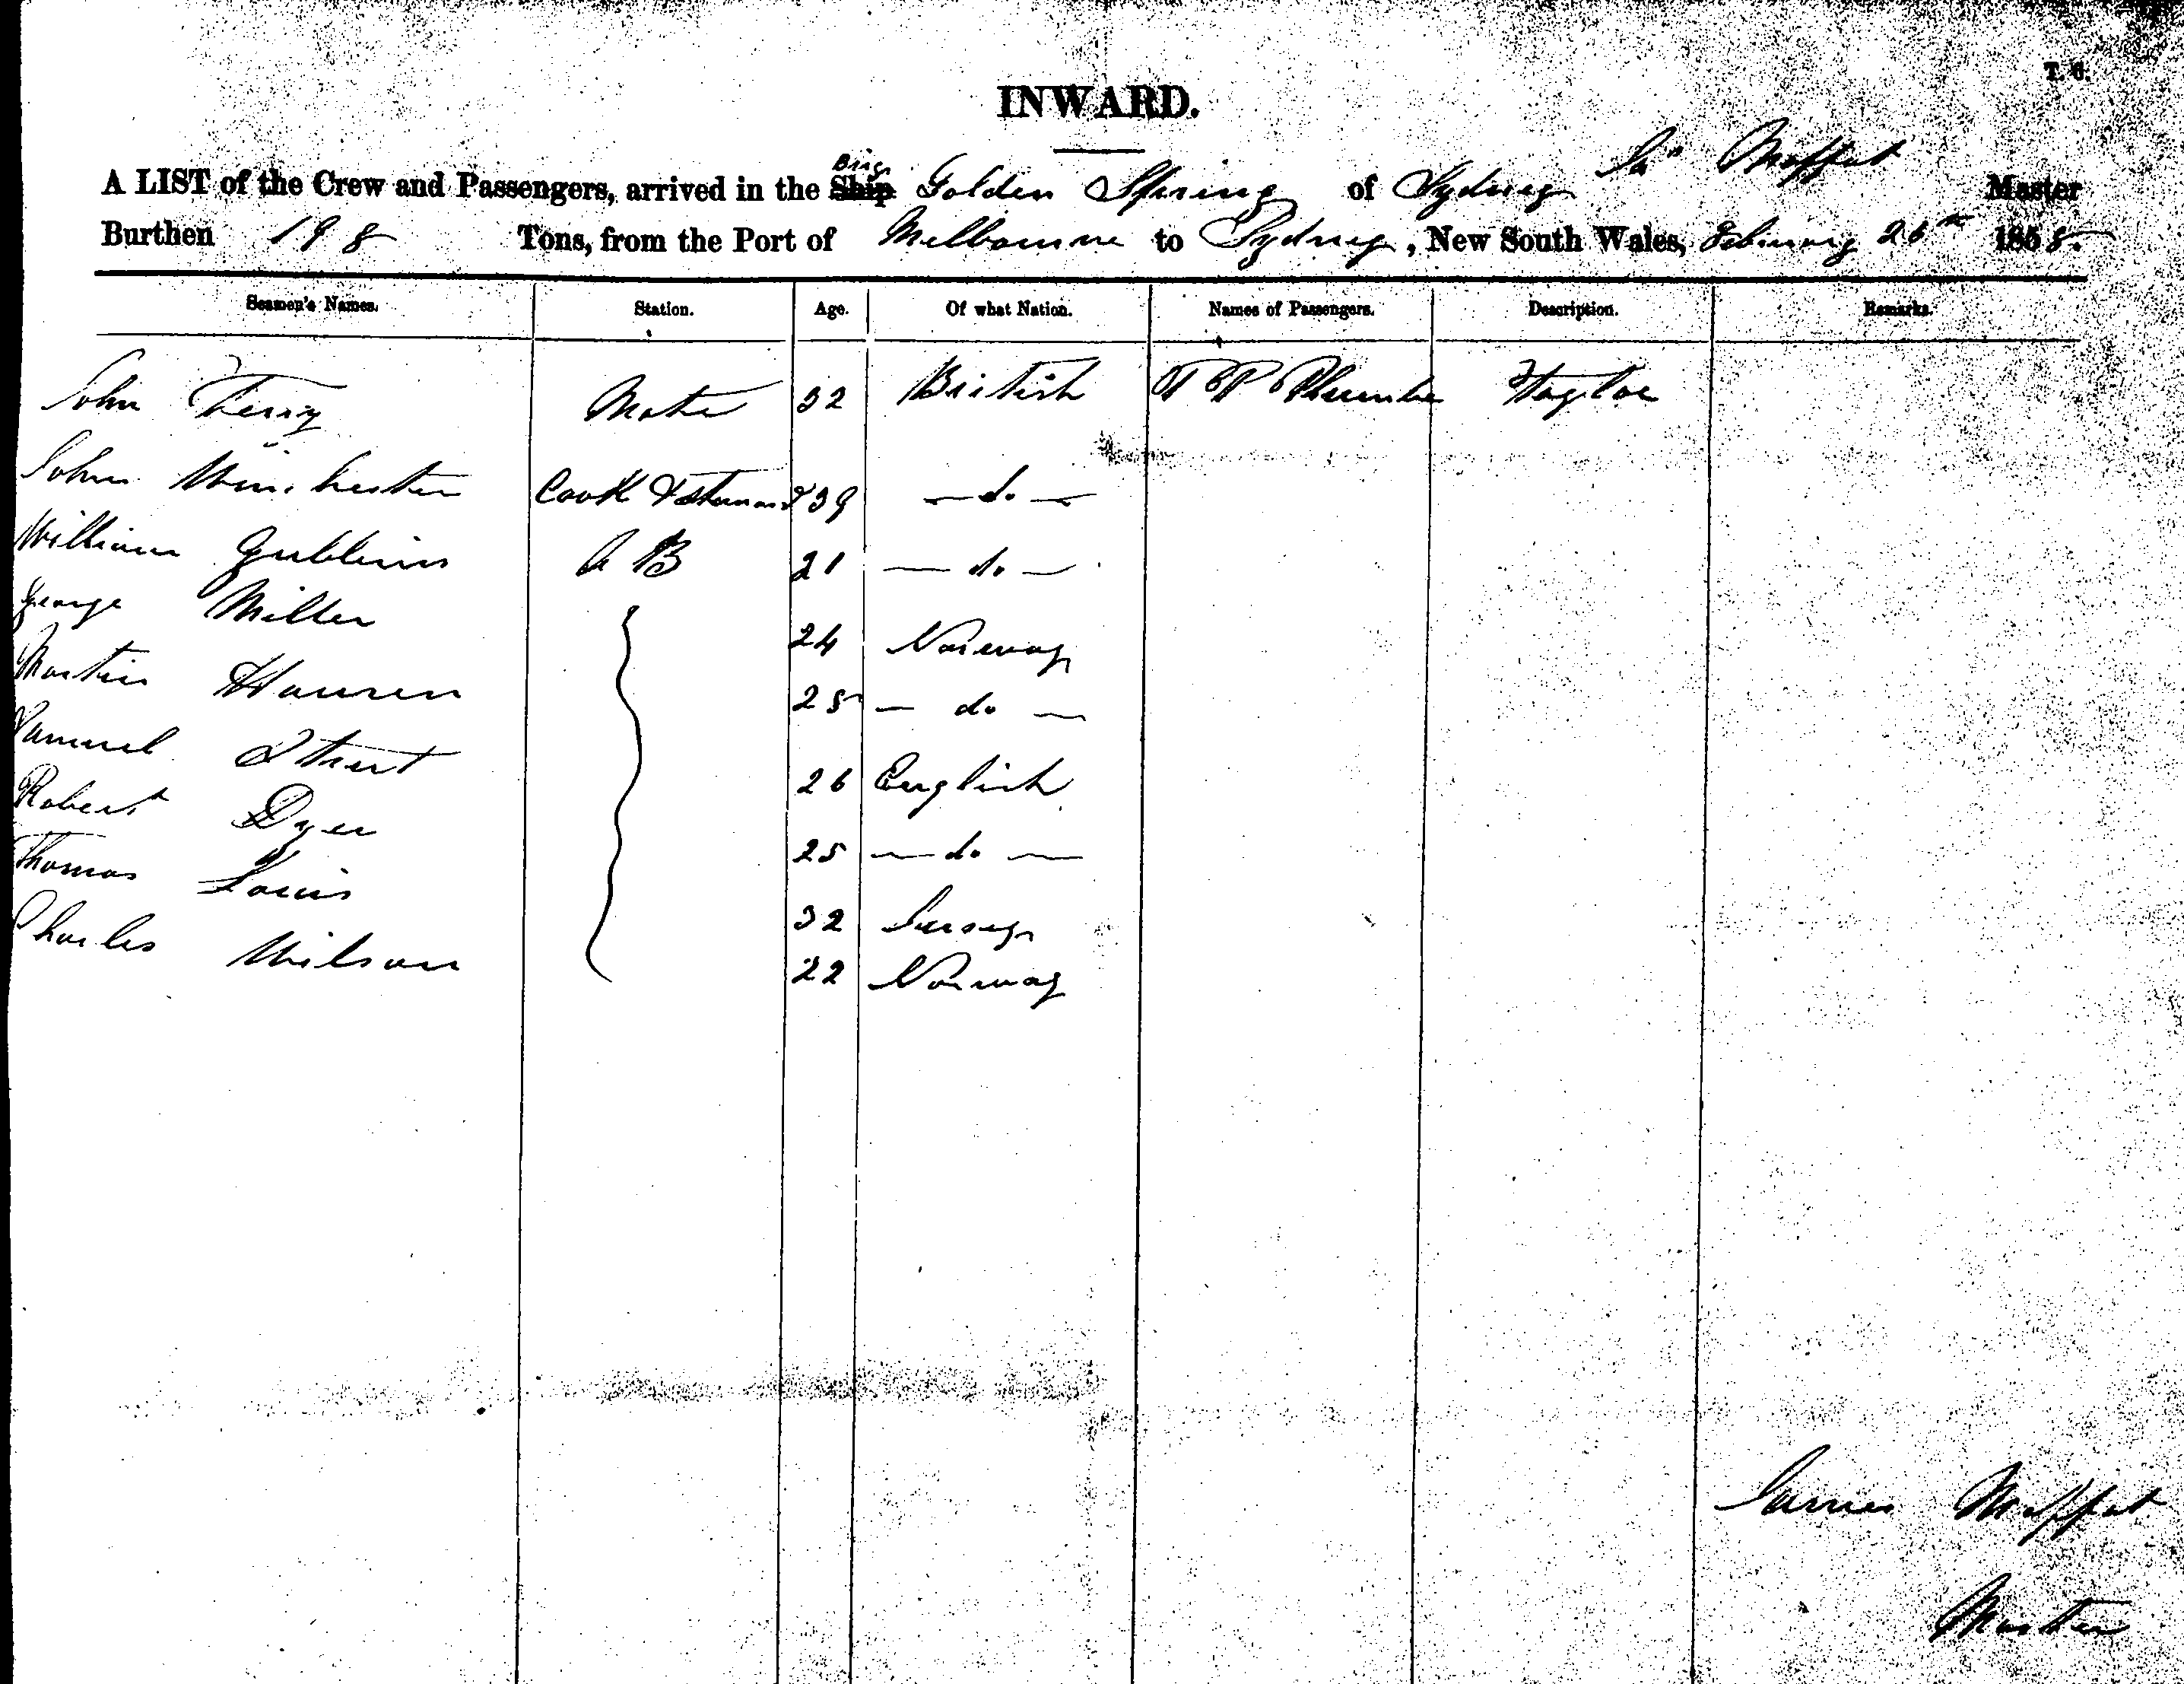 T. 6.
INWARD.
Brig
Jas Moffat
A LIST of the Crew and Passengers, arrived in the Ship Golden Spring of Sydney Master
Burthen 198 Tons, from the Port of Melbourne to Sydney, New South Wales, February 26th 1858.
Seamen's Names. Station. Age. Of what Nation. Names of Passengers. Description. Remarks.
John Terry Mate 32 British
John Winchester Cook & Steward 39 -do-
William Gubbins A B 21 -do-
George Miller 24 Norway
Martin Hansen 25 -do-
Samuel 26 English
Robert Dyer 25 -do-
Thomas Louis 32 Jersey
Charles Wilson 22 Norway
James Moffat
Master